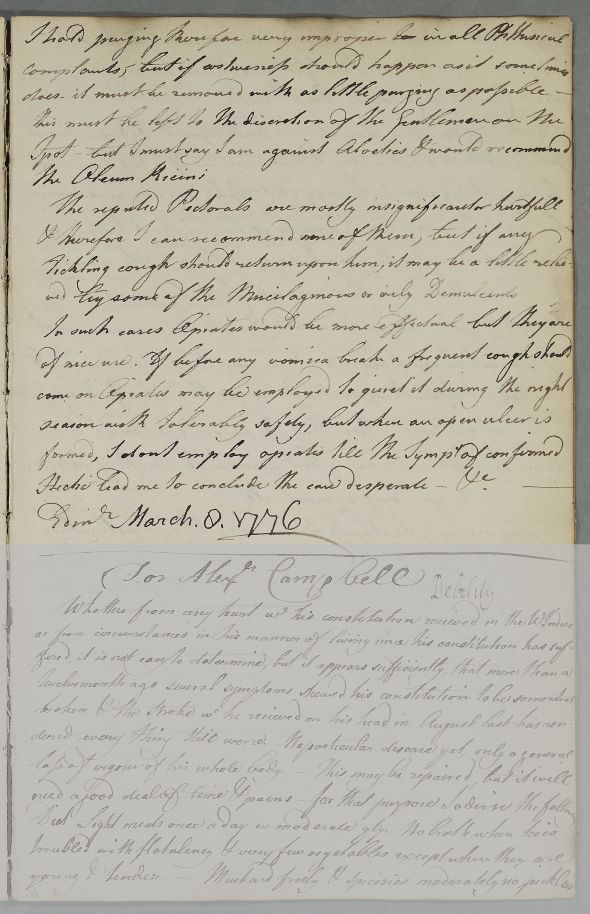 I hold purging therefore very improper in all Phthisical
complaints; but if costiveness should happen as it sometimes
does it must be removed with as little purging as possible —
this must be left to the discretion of the Gentlemen on the
Spot - but I must say I am against Aloetics & would recommend
the Oleum Ricini
The reputed Pectorals are mostly insignificant or hurtfull
& therefore I can recommend none of them, but if any
tickling cough should return upon him, it may be a little relie-
ved by some of the Mucilaginous or oily Demulcents
In such cases Opiates would be more effectual but they are
of nice use. If before any vomica break a frequent cough should
come on Opiates may be employed to quiet it during the night
season with tolerably safety, but when an open ulcer is
formed, I dont employ opiates till the Sympt. of confirmed
Hectic lead me to conclude the case desperate - &c
Edinr March. 8. 1776
For Alexr. Campbell Debility
Whether from any hurt wh his constitution received in the W. Indies
or from circumstances in his manner of living since his constitution has suf-
fered, it is not easy to determine, but it appears sufficiently that more than a
twelvemonth ago several symptoms shewed his constitution to be somewhat
broken & the Stroke wh he recieved on his head in August last has ren-
dered every thing still worse. No particular disease yet, only a general
loss of vigour of his whole body — This may be repaired, but it will
need a good deal of time & pains - for that purpose I advise the follow
Diet Light meals once a day in moderate qty. No broth when he is
troubled with flatulency & very few vegetables except when they are
young & tender. — Mustard freely & spiceries moderately no pickles